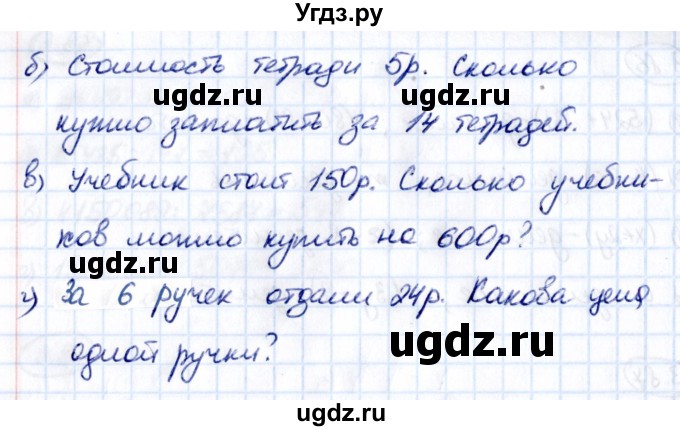 Угдз.ру
б) Стоимость тетради 5р. Сколько
ugdz.ru ugdz.ru
нужно заплатить за 14 тетрадей.
в) Учебник стоит 150р. Сколько учебни-
ков можно купить на 600р?
ugdz.ru ugdz.ru
г) За 6 ручек отдали 24р. Какова цена
одной ручки?
ugdz.ru ugdz.ru
ugdz.ru